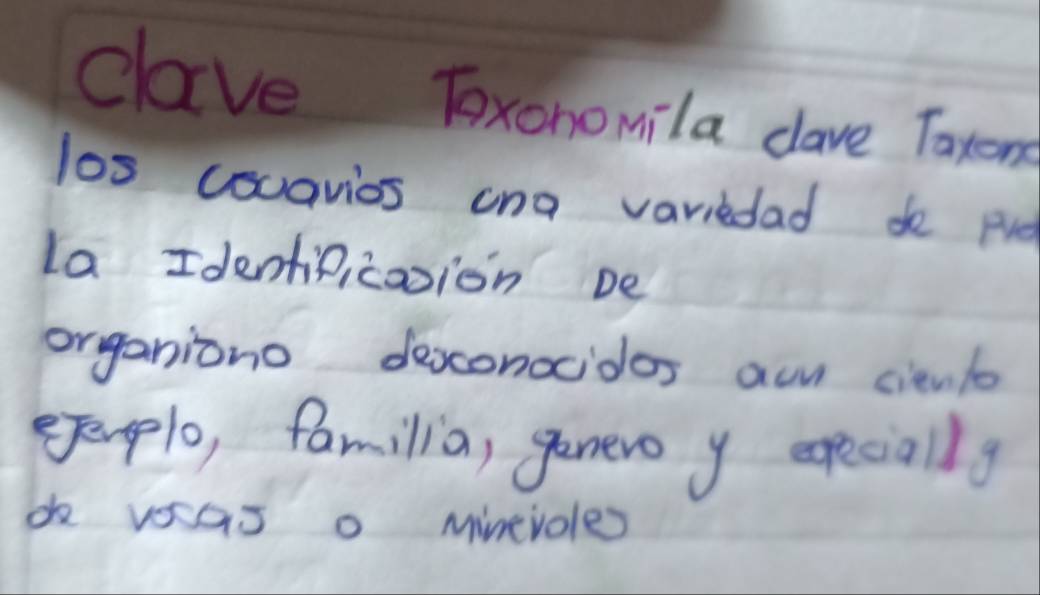 Clave Taxonomila clave Taxono
los usuarios una variedad de
la Identificasión De
organiono desconocidos a un ciento
ejemplo, familia, genero y especially
de rocas o Minerales